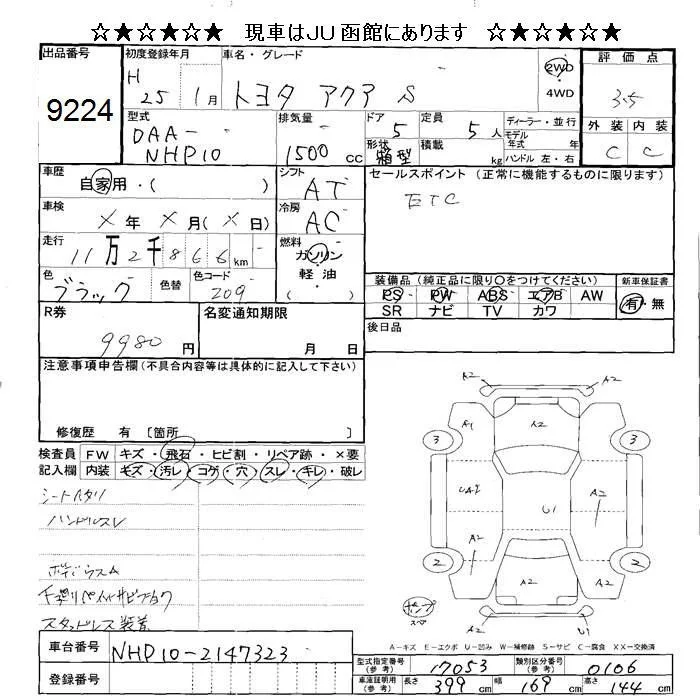 ☆★☆★☆★ 現車はJU函館にあります ☆★☆★☆★
出品番号 9224
初度登録年月 H 25 1月
車名・グレード トヨタ アクア S
2WD 4WD
評価点 3.5
外装 内装
C C
型式 DAA-NHP10
排気量 1500cc
ドア 5
形状 箱型
定員 5人
積載 kg
ディーラー・並行
モデル年式 年
ハンドル 左・右
車歴 自家用・( )
シフト AT
セールスポイント (正常に機能するものに限ります)
ETC
車検 X年 X月(X日)
冷房 AC
走行 11万2千866km
燃料 ガソリン 軽油 ( )
色 ブラック 色替
色コード 209
装備品 (純正品に限り○をつけてください)
PS PW ABS エアB AW
SR ナビ TV カワ
新車保証書 有・無
R券 9980円
名変通知期限 月 日
後日品
注意事項申告欄 (不具合内容等は具体的に記入して下さい)
修復歴 有 〔箇所 〕
検査員記入欄
FW キズ・飛石・ヒビ割・リペア跡・×要
内装 キズ・汚レ・コゲ・穴・スレ・キレ・破レ
シートヘタリ
ハンドルスレ
ボデーウスA
下廻りペイントサビアカク
スタッドレス装着
A2 A2
A1 A2
3 3
UA2 A2
U1
A2
2 2
A2
A2 U1
スペア
A-キズ E-エクボ U-凹み W-補修跡 S-サビ C-腐食 XX-交換済
車台番号 NHP10-2147323
登録番号
型式指定番号(参考) 17053
類別区分番号(参考) 0106
車庫証明用(参考) 長さ 399cm 幅 169cm 高さ 144cm